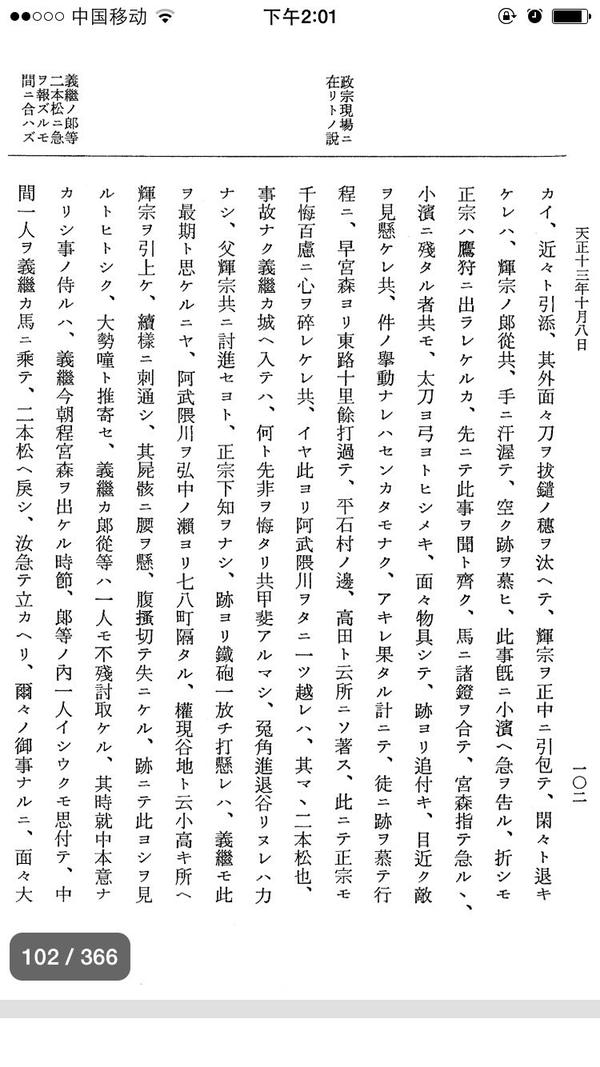 中国移动
下午2:01
天正十三年十月八日
一〇二
政宗現場ニ
在リトノ說
義繼ノ郞等
二本松ニ急
ヲ報ズルモ
間ニ合ハズ
カイ、近々ト引添、其外面々刀ヲ拔鑓ノ穗ヲ汰ヘテ、輝宗ヲ正中ニ引包テ、閑々ト退キ
ケレハ、輝宗ノ郞從共、手ニ汗渥テ、空ク跡ヲ慕ヒ、此事旣ニ小濱ヘ急ヲ告ル、折シモ
正宗ハ鷹狩ニ出ラレケルカ、先ニテ此事ヲ聞ト齊ク、馬ニ諸鐙ヲ合テ、宮森指テ急ル丶、
小濱ニ殘タル者共モ、太刀ヨ弓ヨトヒシメキ、面々物具シテ、跡ヨリ追付キ、目近ク敵
ヲ見懸ケレ共、件ノ擧動ナレハセンカタモナク、アキレ果タル計ニテ、徒ニ跡ヲ慕テ行
程ニ、早宮森ヨリ東路十里餘打過テ、平石村ノ邊、高田ト云所ニソ著ス、此ニテ正宗モ
千悔百慮ニ心ヲ碎レケレ共、イヤ此ヨリ阿武隈川ヲタニ一ツ越レハ、其マヽ二本松也、
事故ナク義繼カ城ヘ入テハ、何ト先非ヲ悔タリ共甲斐アルマシ、兔角進退谷リヌレハ力
ナシ、父輝宗共ニ討進セヨト、正宗下知ヲナシ、跡ヨリ鐵砲一放チ打懸レハ、義繼モ此
ヲ最期ト思ケルニヤ、阿武隈川ヲ弘中ノ瀨ヨリ七八町隔タル、權現谷地ト云小高キ所ヘ
輝宗ヲ引上ケ、續樣ニ刺通シ、其屍骸ニ腰ヲ懸、腹搔切テ失ニケル、跡ニテ此ヨシヲ見
ルトヒトシク、大勢噇ト推寄セ、義繼カ郞從等ハ一人モ不殘討取ケル、其時就中本意ナ
カリシ事ノ侍ルハ、義繼今朝程宮森ヲ出ケル時節、郞等ノ內一人イシウクモ思付テ、中
間一人ヲ義繼カ馬ニ乘テ、二本松ヘ戾シ、汝急テ立カヘリ、爾々ノ御事ナルニ、面々大
102 / 366